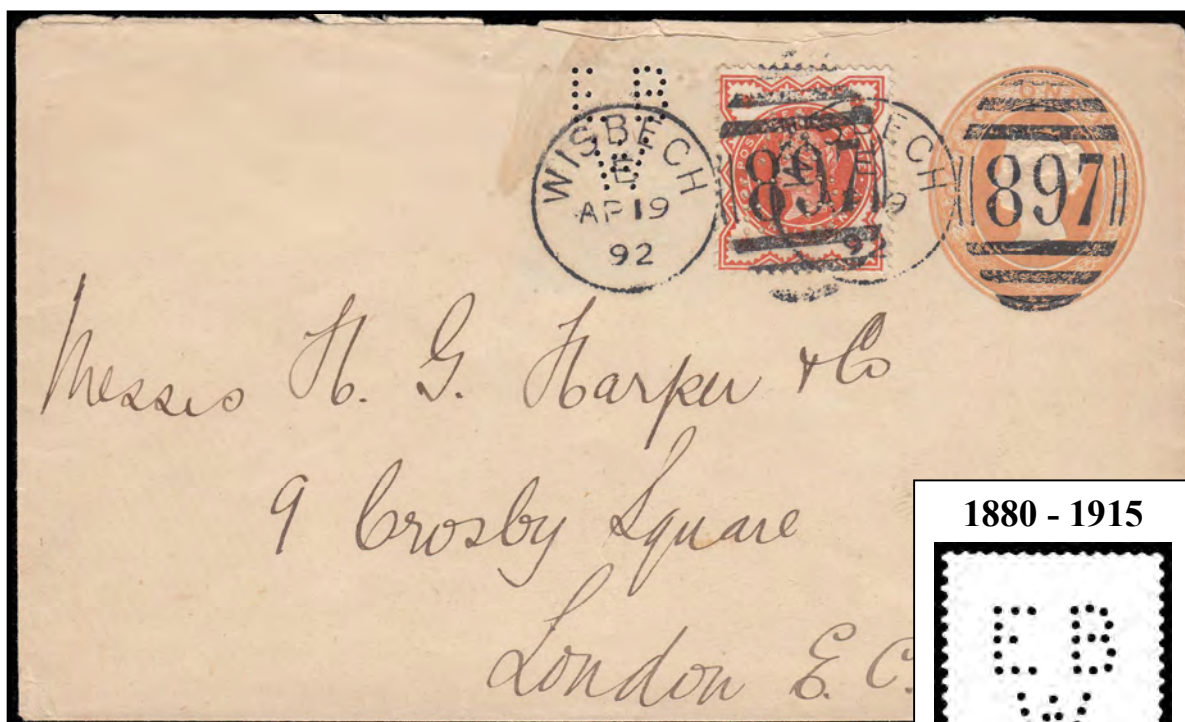 E B
W
WISBECH
E
AP 19
92
897
897
Messrs H. G. Harper & Co
9 Crosby Square
London E. C.
1880 - 1915
E B
W